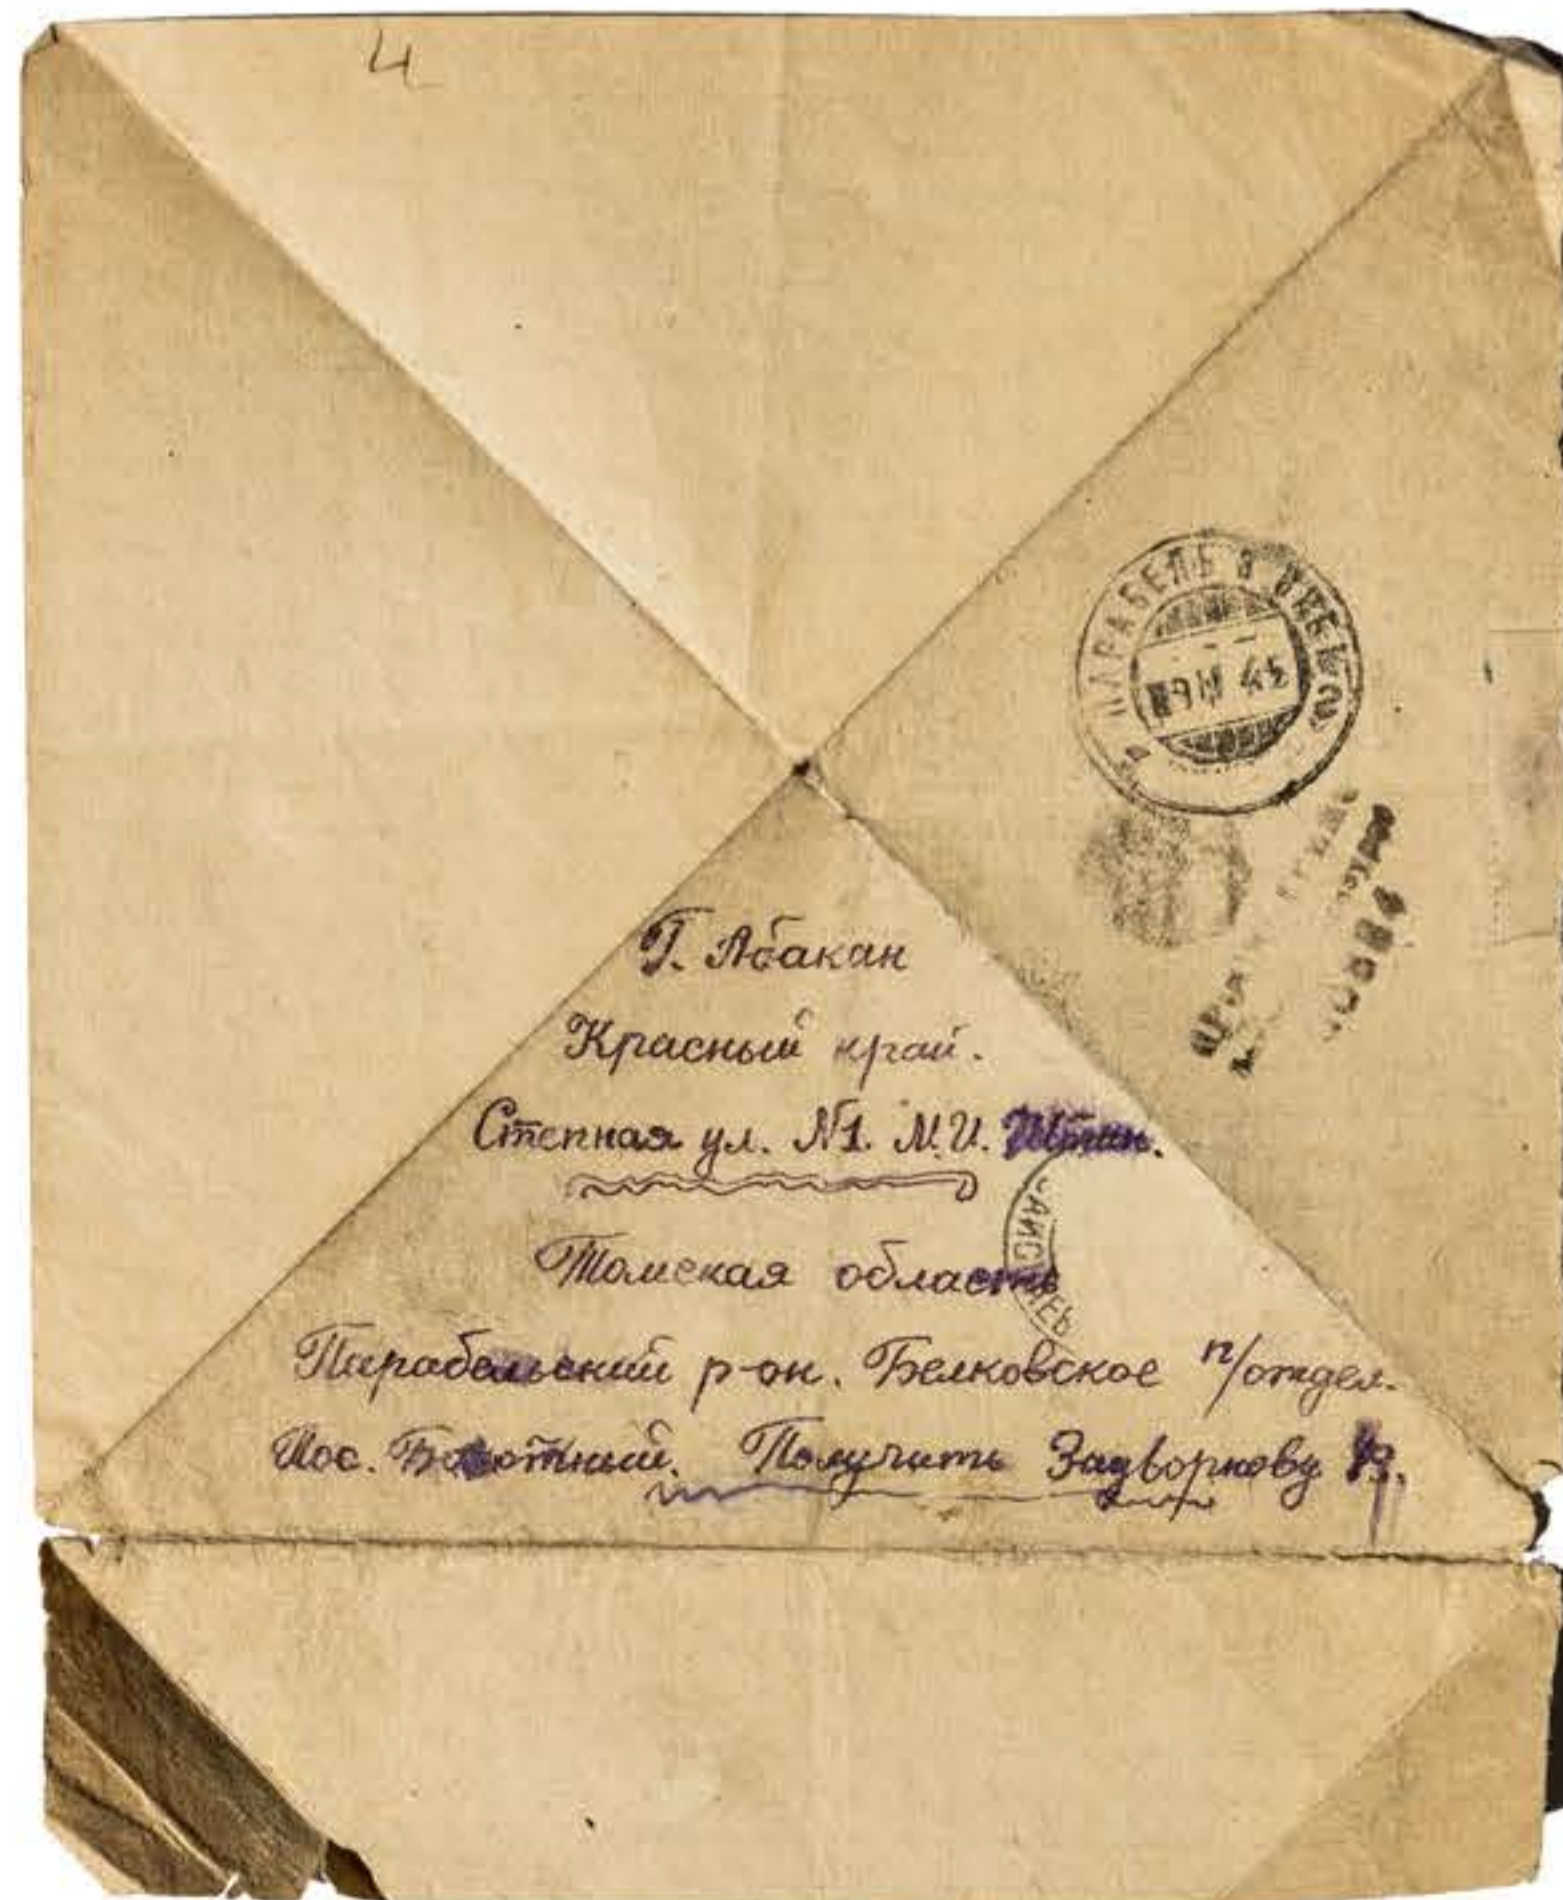 4
ПАРАБЕЛЬ
45
Г. Абакан
Красный край.
Степная ул. №1. М.И.
Томская область
Парабельский р-он. Белковское п/отдел.
Пос. Болотный. Получить Задворнову